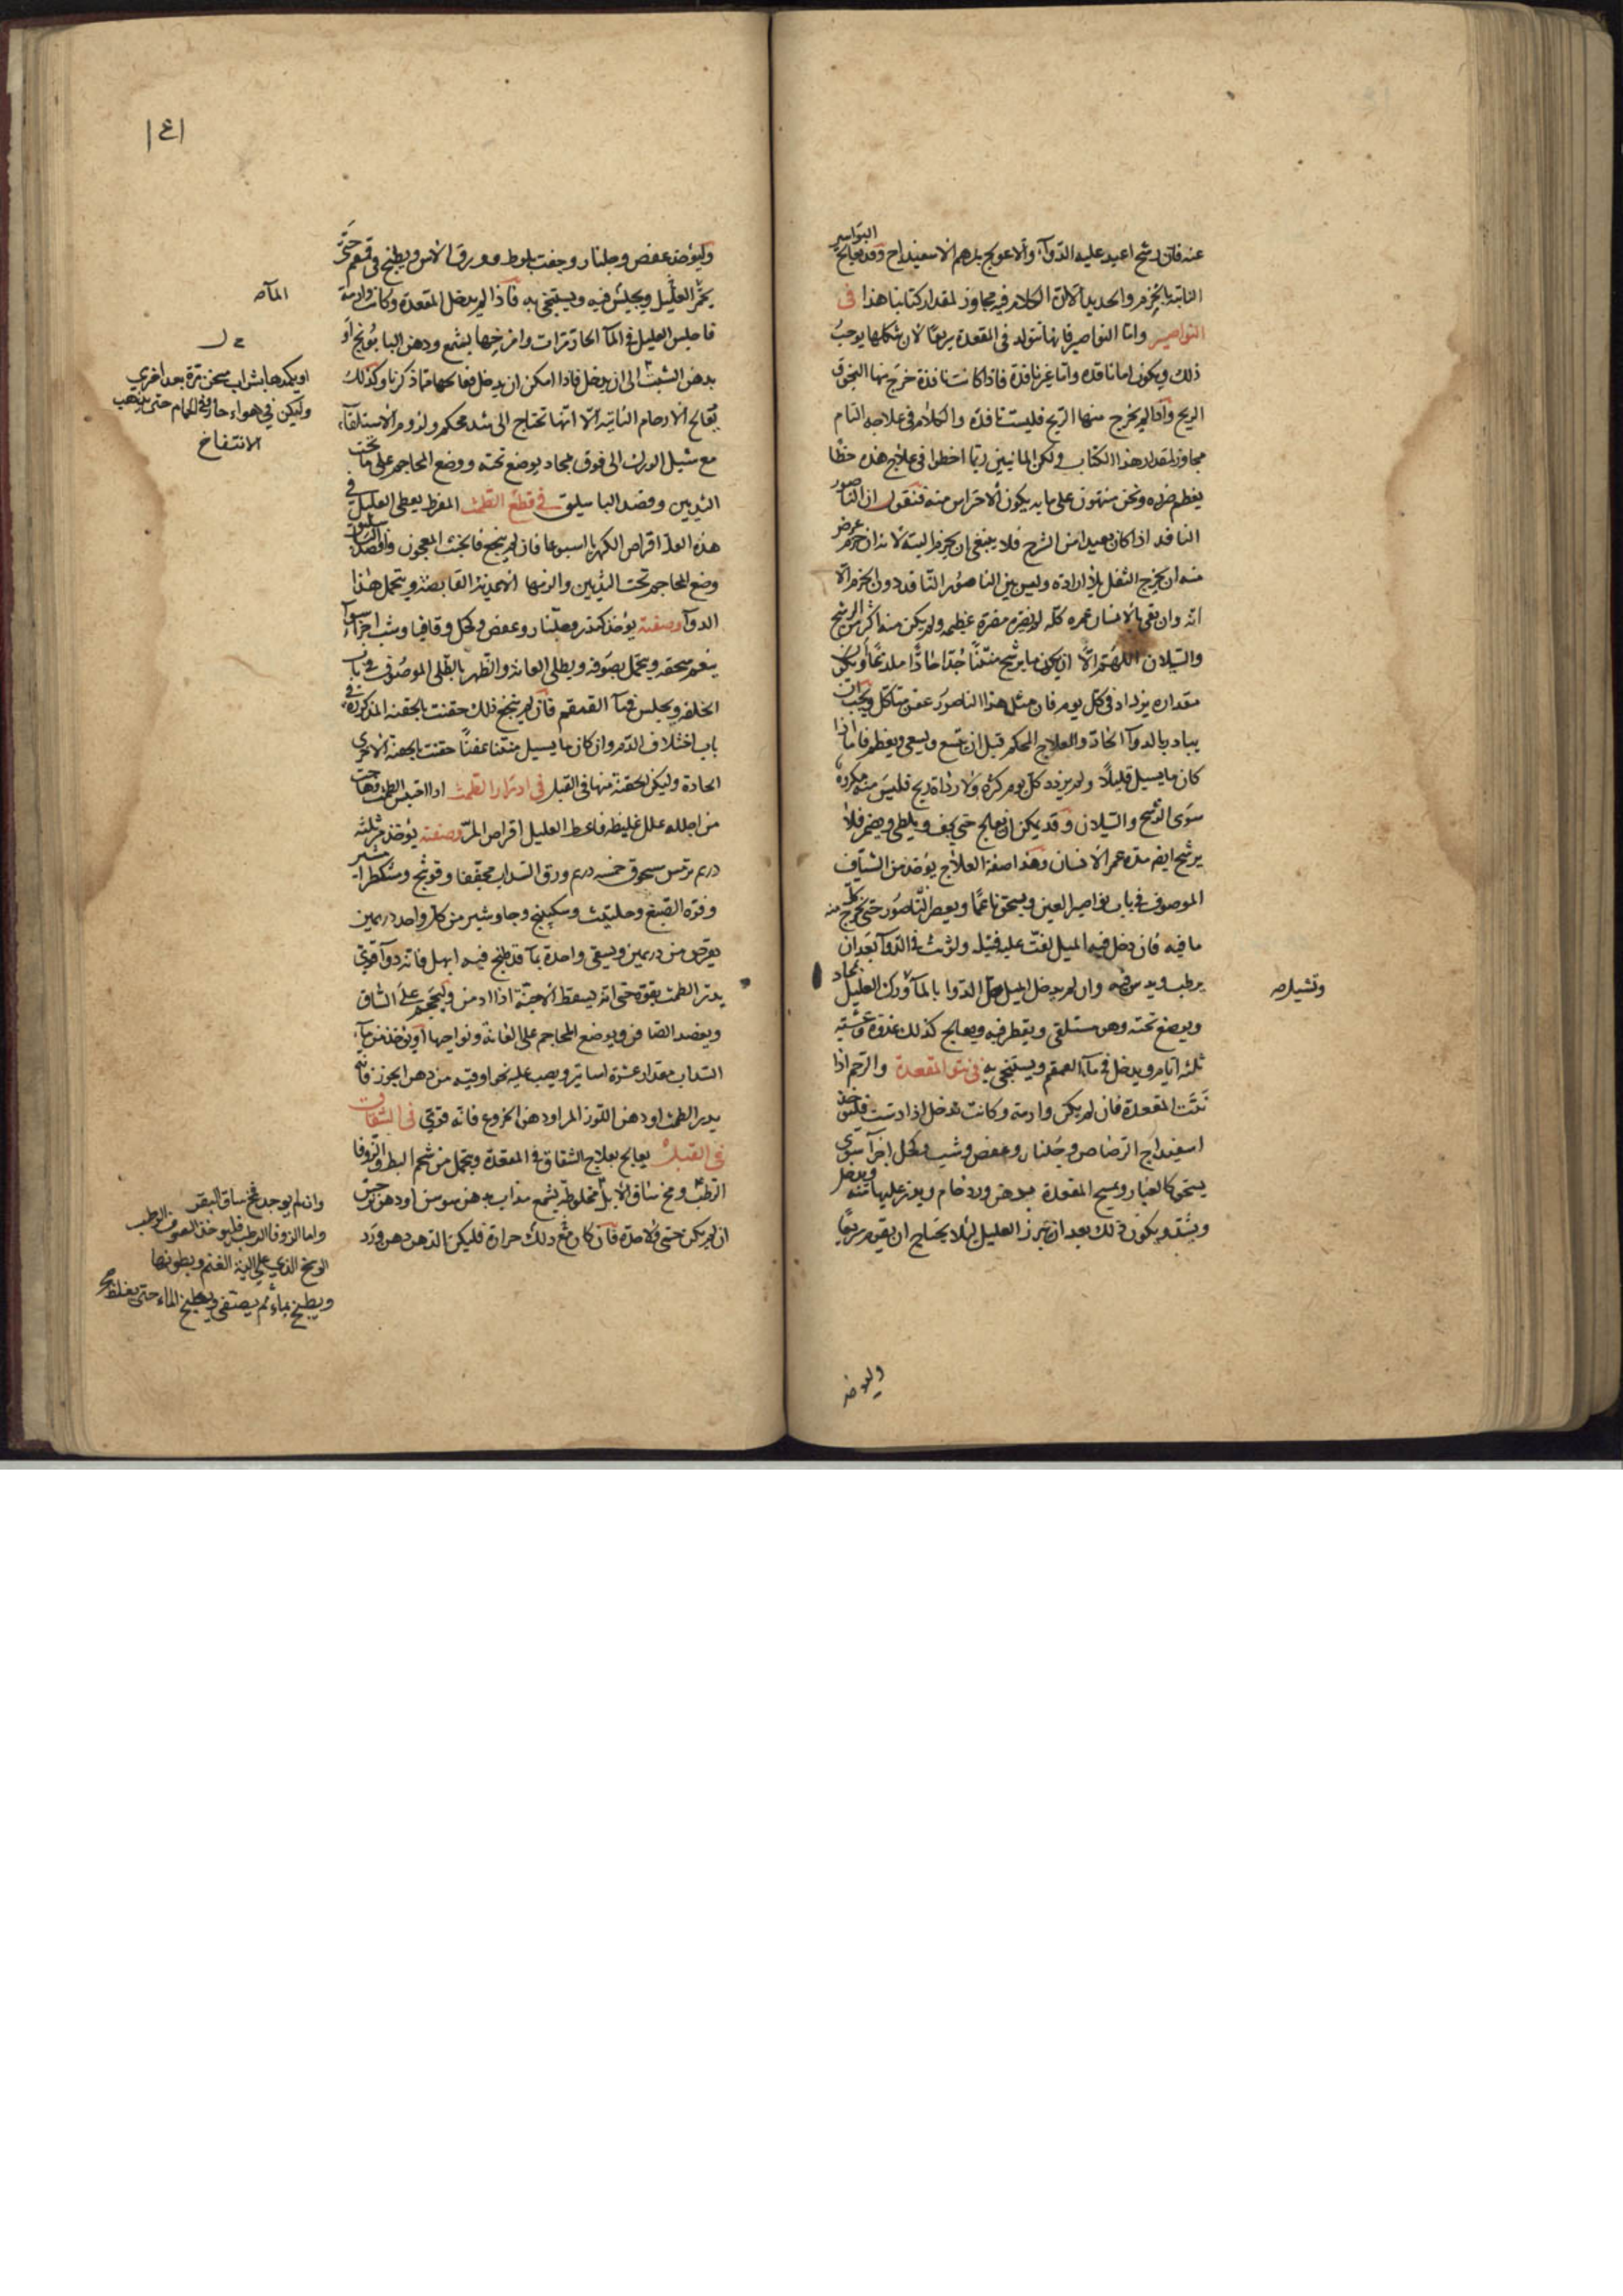 عنه فان رشح اعيد عليه الدوآء والا عولج بمرهم الاسفيداج وقد يعالج البواسير
الناتية بالخزم والحديد الا ان الكلام فيه مجاوز لمقدار كتابنا هذا في
النواصير واما النواصير فانها تتولد في المقعدة سريعًا لان شكلها يوجبُ
ذلك ويكون اما نافذه واما غير نافذة فاذا كانت نافذة خرج منها النجو و
الريح واذا لم يخرج منها الريح فليست نافذة والكلام في علاجه التام
مجاوز لمقدار هذا الكتاب ولكن المانيين ربما اخطوا في علاج هذه خطًا
يعظم ضرره ونحن منبهون على ما به يكون الاحتراس منه فنقول ان الناصور
النافد اذا كان بعيدا من الشرج فلا ينبغي ان يخزم البتة لانه ان خزم عرض
منه ان يخرج الثفل بلا ارادة وليس بين الناصور النافد دون الخزم الا
انه وان بقي بالانسان عمره كله لم يضره مضرة عظيمه ولم يكن منه اكثر من الرشح
والسيلان اللهم الا ان يكون ما يرشح منتنًا جدًا حادًا ملدعًا او يكون
مقداره يزداد في كل يوم فان مثل هذا الناصور عفن متاكل ويجب ان
يبادر بالدوآ الحاد والعلاج المحكم قبل ان يتسع ويسعى ويعظم فاما اذا
كان ما يسيل قليلًا ولم يزدد كل يوم كثره ولا رداة ريح فليس منه مكروه
سوى الوسخ والسيلان وقد يمكن ان يعالج حتى يجف ويلطى ويضمر فلا
يرشح ايضا مدة عمر الانسان وهذا صفة العلاج يؤخذ من الشياف
الموصوف في باب نواصير العين ويسحق ناعمًا ويعصر الناصور حتى يخرج منه كل
ما فيه فان دخل فيه الميل لفت عليه فتيله ولوثت في الدوآ بعد ان
يرطب ويدس فيه وان لم يدخل الميل حل الدوا بالمآ ورك العليل بمخاد
وتشيل صه
ويوضع تحته وهو مستلقي ويقطر فيه ويعالج كذلك غدوة وعشية
ثلثه ايام ويدخل في مآ القمقم ويستنجي به في نتو المقعدة والرحم اذا
نتت المقعدة فان لم يكن وارمة وكانت تدخل اذا دست فليوخذ
اسفيداج الرصاص وجلنار وعفص وشب وكحل اجزآ سوى
يسحق كالغبار ويمسح المقعدة بدهن ورد خام ويذر عليها منه ويدخل
ويشد ويكون ذلك بعد ان تبرز العليل لئلا يحتاج ان يقوم سريعًا
وليوخذ
١٤١
وليؤخذ عفص وجلنار وجفت بلوط وورق الاس ويطبخ في قمقم حتى
يحمر العليل ويجلس فيه ويستنجي به فاذا لم يدخل المقعدة وكانت وارمة
المآ صه
فاجلس العليل في المآ الحار مرات وامرخها بشمع ودهن البابونج او
بدهن الشبت الى ان يدخل فاذا امكن ان يدخل فعالجها مما ذكرنا وكذلك
او يكمدها بشراب سخن مرة بعد اخرى
وليكن في هواء حار وفي الحمام حتى يذهب
الانتفاخ
يعالج الارحام الناتية الا انها تحتاج الى شد محكم ولزوم الاستلقآء
مع شيل الورك الى فوق بمخاد يوضع تحته ووضع المحاجم على ما تحت
الثديين وفصد الباسليق في قطع الطمث المفرط يعطى العليل في
هذه العلة اقراص الكهربا اسبوعا فان لم ينجح فالخبث المعجون وافصد الباسليق
وضع المحاجم تحت الثديين والزمها الاغذية القابضة ويتحمل هذا
الدوآ وصفته يؤخذ كندر وجلنار وعفص وكحل وقاقيا وشب اجزآء سوآ
ينعم سحقه ويتحمل بصوفه ويطلي العانة والظهر بالطلى الموصوف في باب
الخلفه ويجلس في مآ القمقم فان لم ينجح ذلك حقنت بالحقنه المذكورة في
باب اختلاف الدم وان كان ما يسيل منتنا عفنًا حقنت بالحقنة الاخرى
الحادة وليكن الحقنة منها في القبل في ادرار الطمث اذا احتبس الطمث وهاجت
من اجله علل غليظه فاعط العليل اقراص المر وصفته يؤخذ مر ثلثة
درهم ترمس مسحوق خمسة درهم ورق السداب مجففا وفوتنج ومشكطرامشير
وفوه الصبغ وحلتيت وسكبينج وجاوشير من كل واحد درهمين
يقرص من درهمين ويسقى واحدة بمآ قد طبخ فيه ابهل فانه دوآ قوي
يدر الطمث بقوة حتى انه يسقط الاجنة اذا ادمن وليحجم على الساق
ويفصد الصافن ويوضع المحاجم على العانة ونواحيها او يؤخذ من مآء
السداب مقدار عشرة اساتير ويصب عليه نحو اوقية من دهن الجوز فانه
يدر الطمث او دهن اللوز المر او دهن الخروع فانه قوي في الشقاق
في القبل يعالج بعلاج الشقاق في المقعدة ويتحمل من شحم البط والزوفا
الرطب ومخ ساق الابل مخلوطة بشمع مذاب بدهن سوسن او دهن نرجس
ان لم يكن حمى ولا حدة فان كان مع ذلك حرارة فليكن الدهن دهن ورد
وان لم يوجد مخ ساق البقر
واما الزوفا الرطب فليوخذ الصوف الرطب
الوسخ الذي على الية الغنم وبطونها
ويطبخ بماء ثم يصفى ويطبخ الماء حتى يغلظ صح